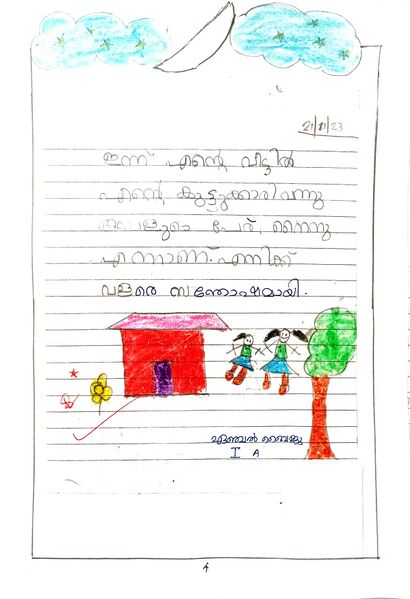 21/11/23
ഇന്ന് എന്റെ വീട്ടിൽ
എന്റെ കൂട്ടുകാരി വന്നു
അവളുടെ പേര് നൈനു
എന്നാണ്. എനിക്ക്
വളരെ സന്തോഷമായി.
ഏഞ്ചൽ ബൈജു
I A
4